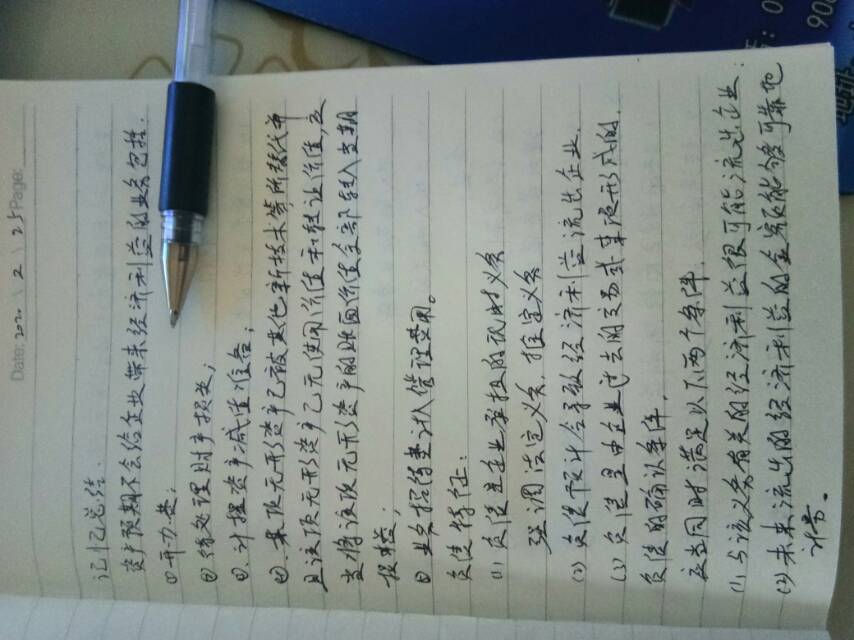 Date: 2020 \ 2 \ 25 Page:
记忆总结.
资产预期不会给企业带来经济利益的业务包括.
①开办费;
②待处理财产损失;
③.计提资产减值准备;
④.某项无形资产已被其他新技术等所替代并
且该项无形资产已无使用价值和转让价值,应
当将该项无形资产的账面价值全部转入当期
损益;
⑤业务招待费计入管理费用。
负债特征:
(1)负债是企业承担的现时义务
强调法定义务.推定义务
(2)负债预计会导致经济利益流出企业.
(3)负债是由企业过去的交易或事项形成的.
负债的确认条件.
应当同时满足以下两个条件.
(1)与该义务有关的经济利益很可能流出企业;
(2)未来流出的经济利益的金额能够可靠地
计量。